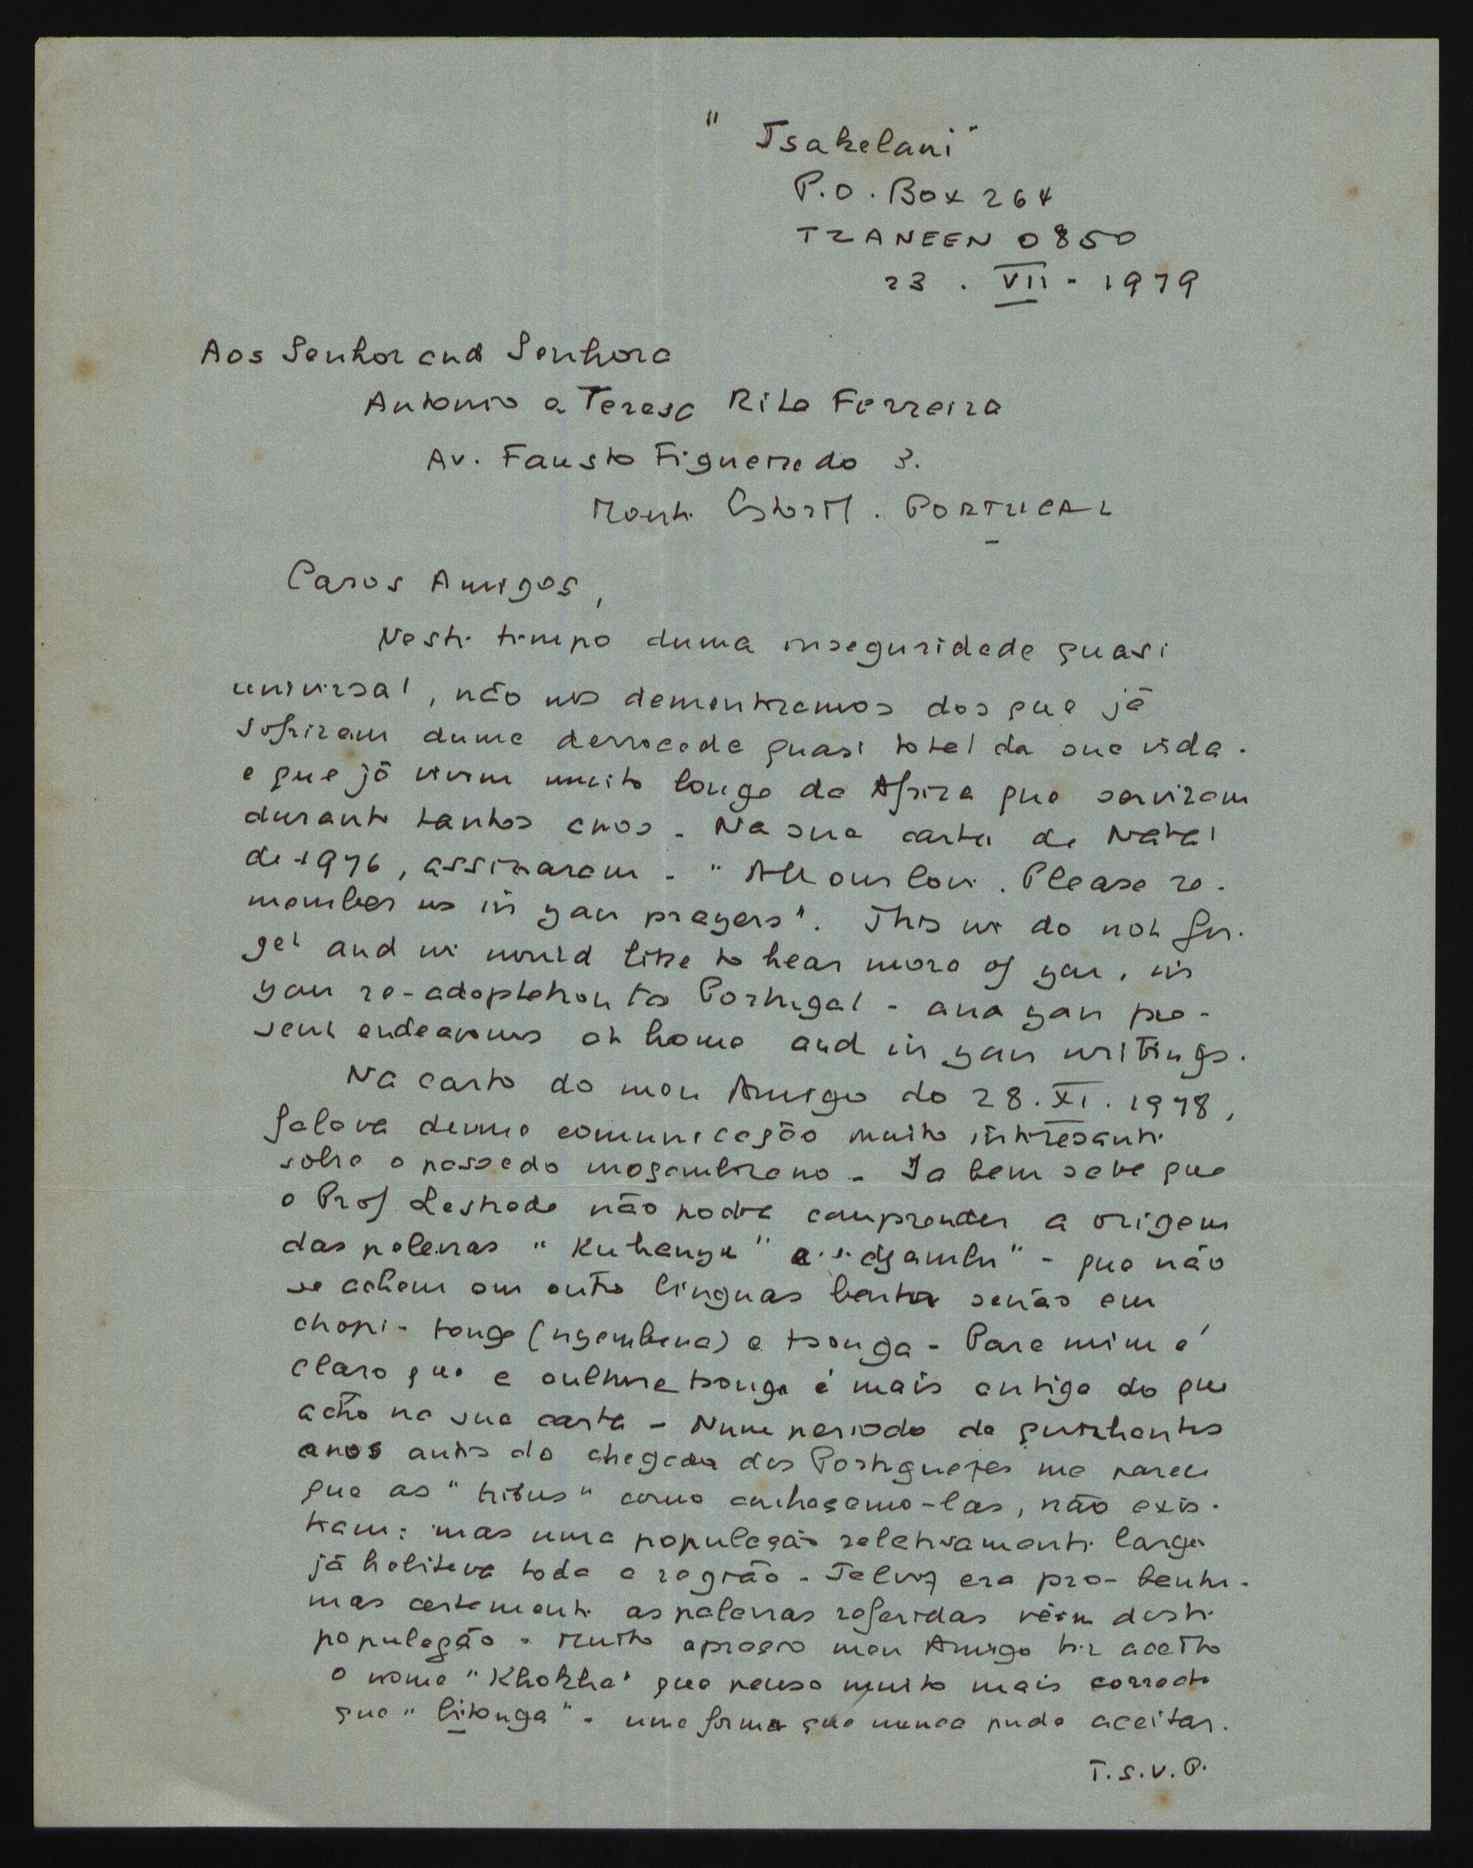 "Tsakelani"
P.O. Box 264
TZANEEN 0850
23 . VII - 1979
Aos Senhor and Senhora
Antonio e Teresa Rita Ferreira
Av. Fausto Figueiredo 3.
Monte Estoril. PORTUGAL
Caros Amigos,
Neste tempo duma inseguridade quasi
universal, não nos dos que já
sofriram duma derrocada quasi total da sua vida -
e que já vivem muito longe da Africa que serviram
durante tantos anos - Na sua carta de Natal
de 1976, assinaram - "All our love. Please re-
member us in your prayers". This we do not for-
get and we would like to hear more of you, in
your re-adaptation to Portugal - and your pre-
sent endeavours at home and in your writings.
Na carta do meu Amigo do 28. XI. 1978,
falava duma comunicação muito intresante
sobre o passado moçambicano - Ja bem sabe que
o Prof Lestrade não podia comprender a origem
das palavras "Kuhanya" e "dyambu" - que não
se achem em outra linguas bantu senão em
chopi - tonga (nyembana) e tsonga - Para mim é
claro que a cultura tsonga é mais antiga do que
acho na sua carta - Num periodo de quinhentos
anos antes da chegada dos Portuguezes me parece
que as "tribus" como conheçemo-las, não exis-
tiam: mas uma população relativamente larga
já habitava toda a região - Talvez era pro-bantu -
mas certamente as palavras referidas vêem desta
população - Muito apreço meu Amigo ter aceito
o nome "Khokha" que penso muito mais correcto
que "bitonga" - uma forma que nunca pude aceitar.
T.S.V.P.